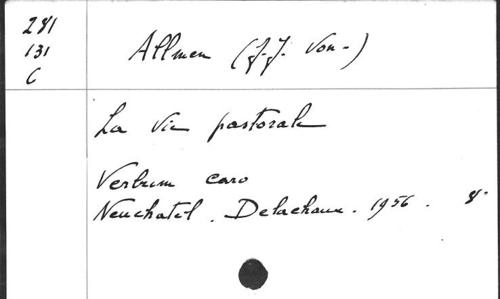 281
131
C
Allmen (J.-J. von-)
La vie pastorale
Verbum caro
Neuchatel. Delachaux. 1956. 8°